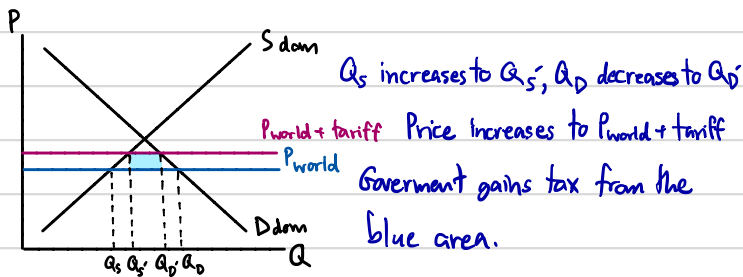 P
S dom
Qs increases to Qs', QD decreases to QD'
Pworld + tariff Price increases to Pworld + tariff
Pworld
Goverment gains tax from the
blue area.
D dom
Qs Qs' QD' QD Q